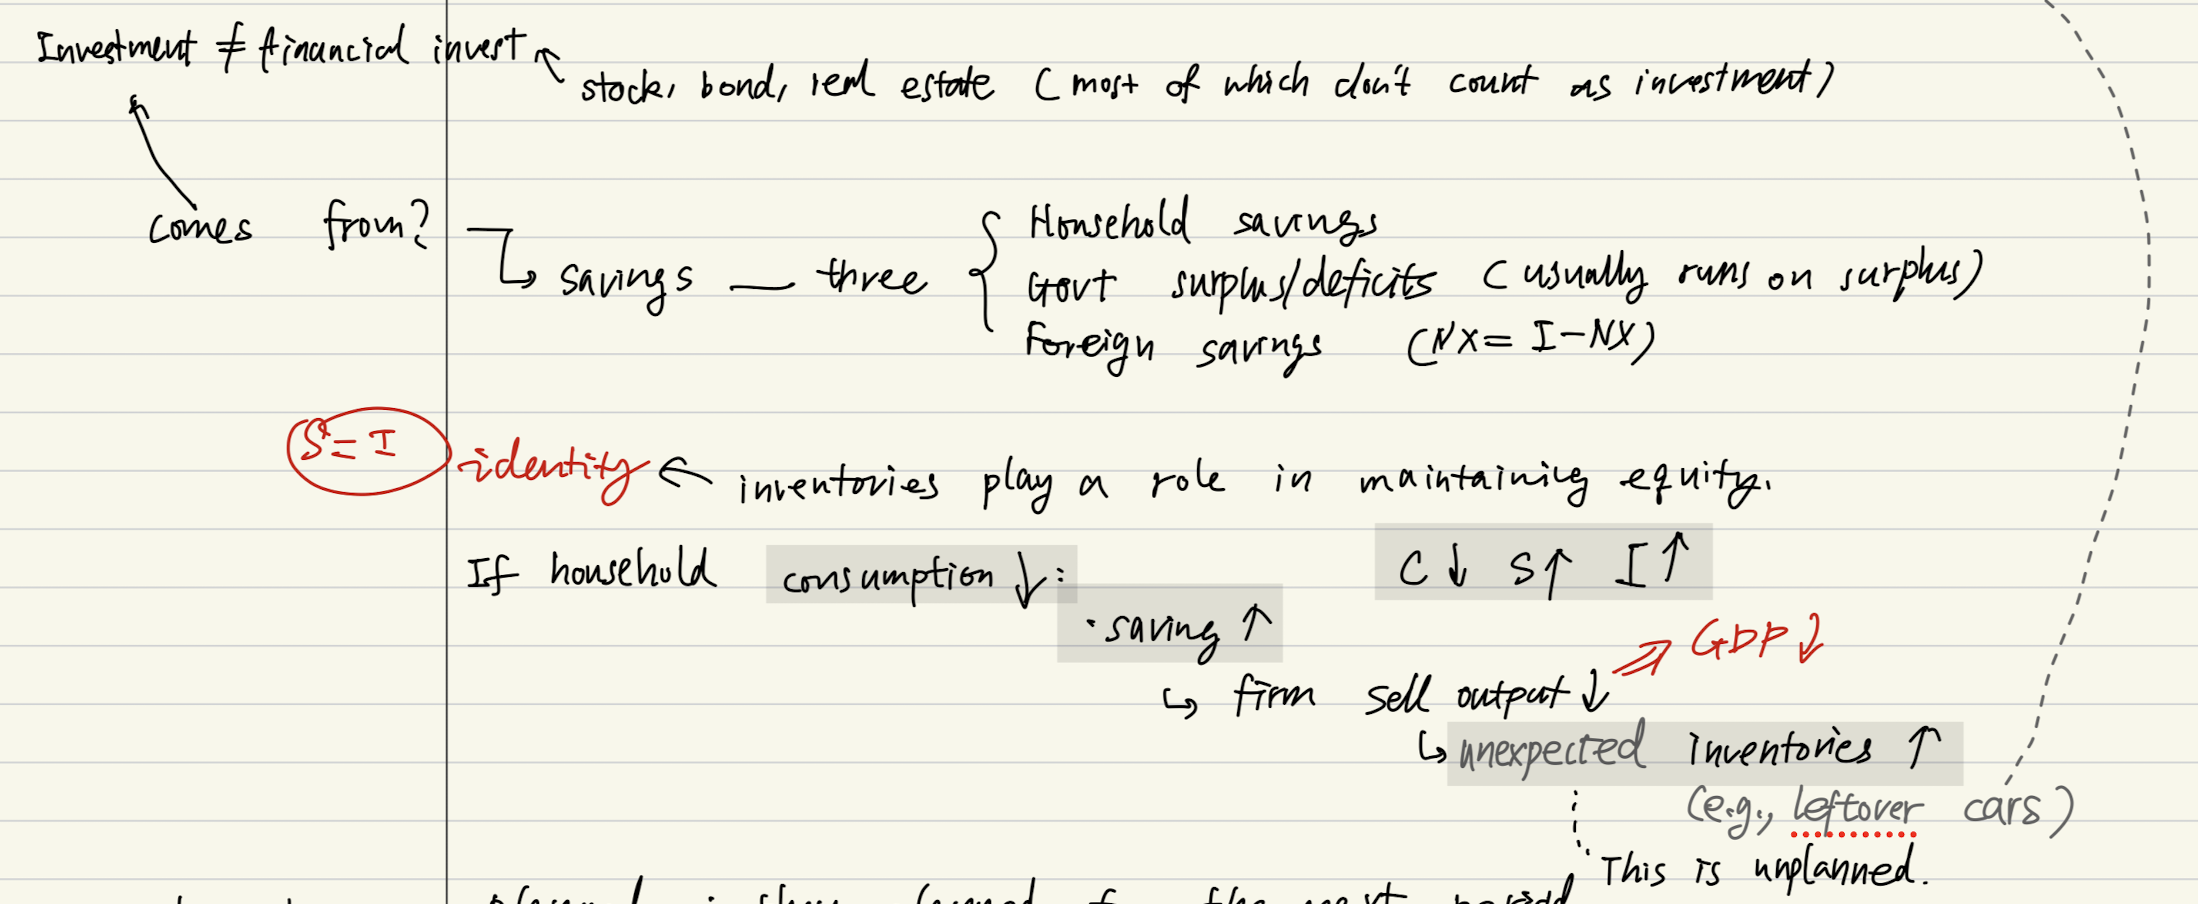 Investment ≠ financial invest
stock, bond, real estate (most of which don't count as investment)
comes from?
savings — three
Household savings
Govt surplus/deficits (usually runs on surplus)
Foreign savings (NX = I-NX)
S = I identity ← inventories play a role in maintaining equity.
If household consumption ↓:
C ↓ S ↑ I ↑
· saving ↑
↳ firm sell output ↓ ⇒ GDP ↓
↳ unexpected inventories ↑
(e.g., leftover cars)
This is unplanned.
the next period